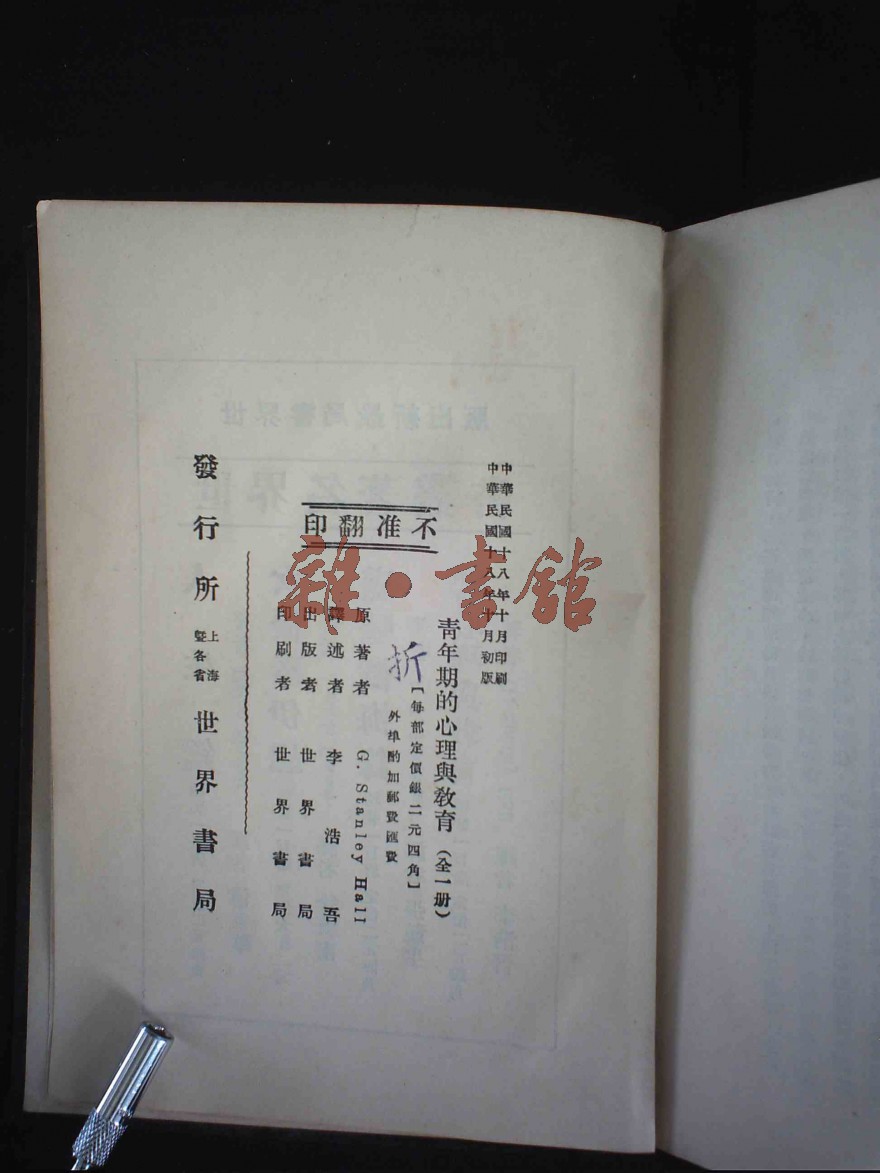 中華民國十八年十月印刷
中華民國十八年十月初版
不准翻印
青年期的心理與教育（全一册）
［每部定價銀二元四角］
外埠酌加郵費匯費
折
原著者 G. Stanley Hall
譯述者 李浩吾
出版者 世界書局
印刷者 世界書局
發行所 上海暨各省 世界書局
雜·書館